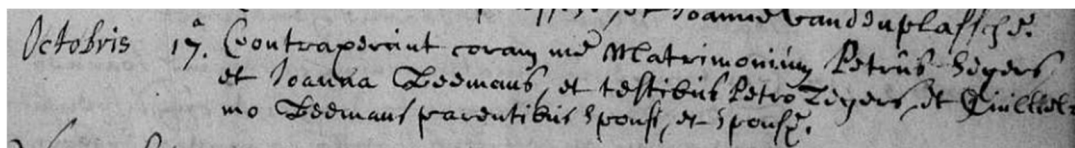 et Joanne Vanden plassche.
Octobris 17ᵃ. Contraxerunt coram me Matrimonium Petrus Segers
et Joanna Beemans, et testibus Petro Zegers, et Guilliel=
mo Beemans parentibus sponsi, et sponsę.